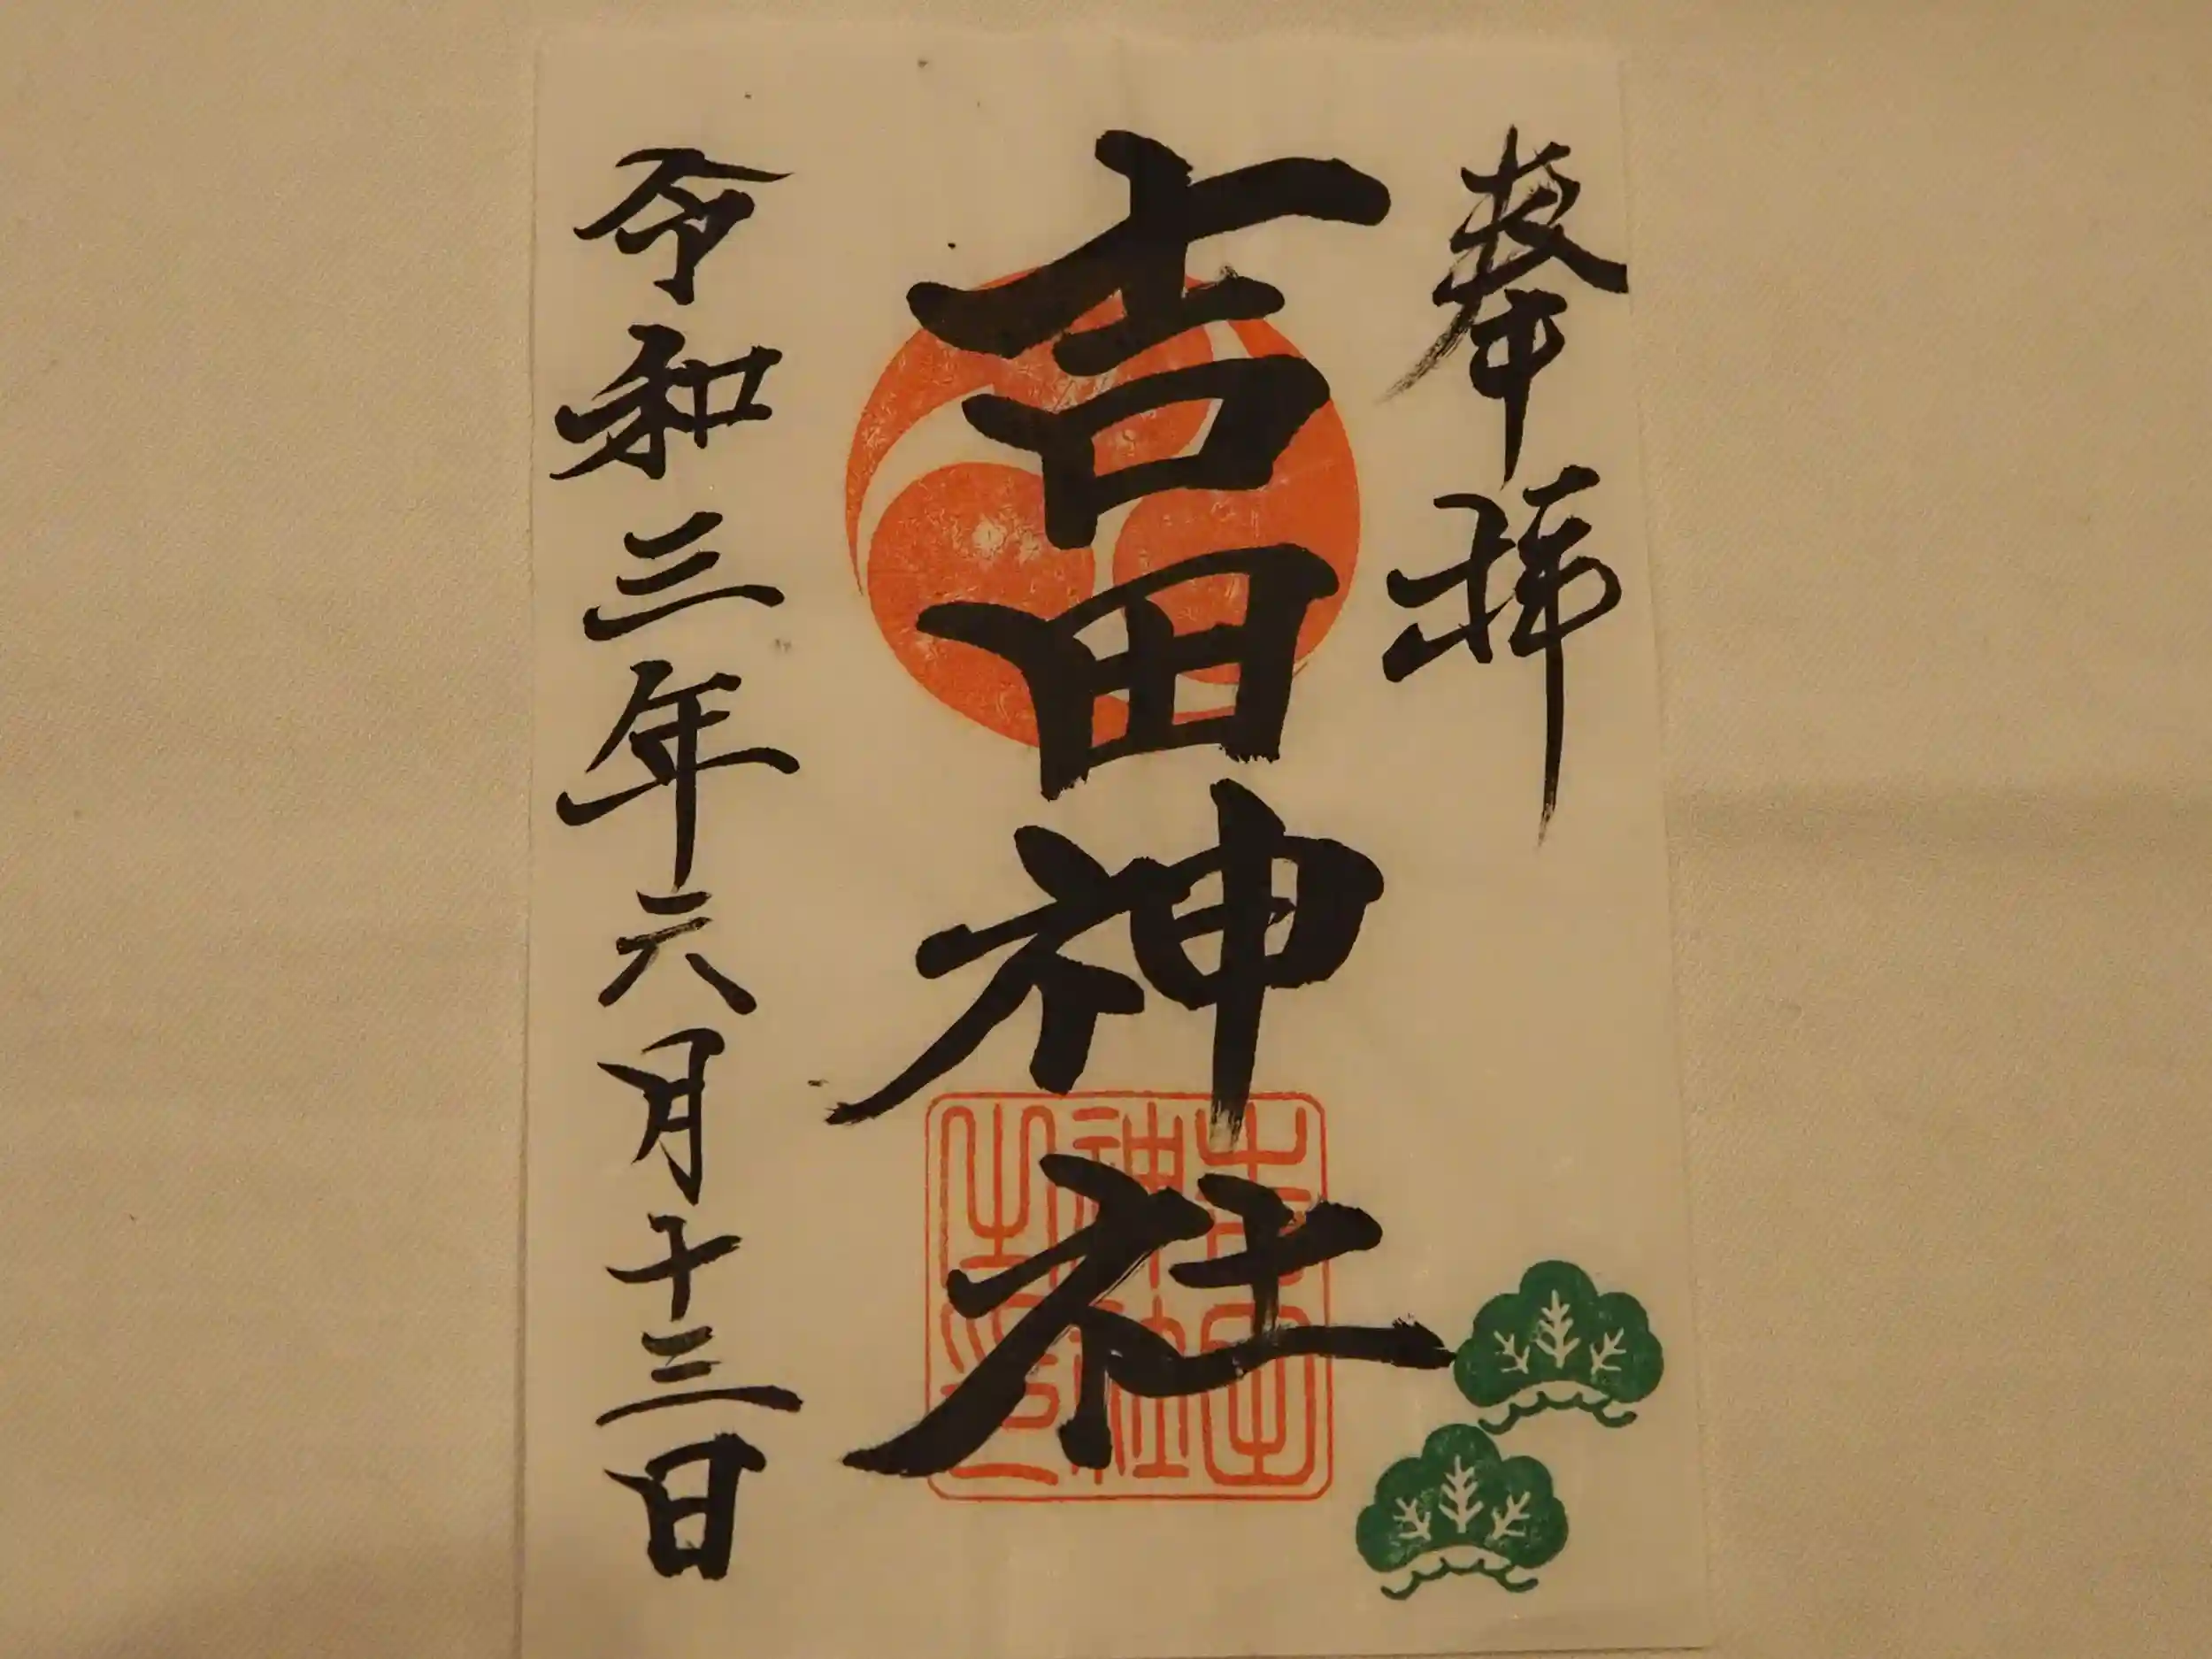 奉拝
吉田神社
吉田
神社
之印
令和三年六月十三日